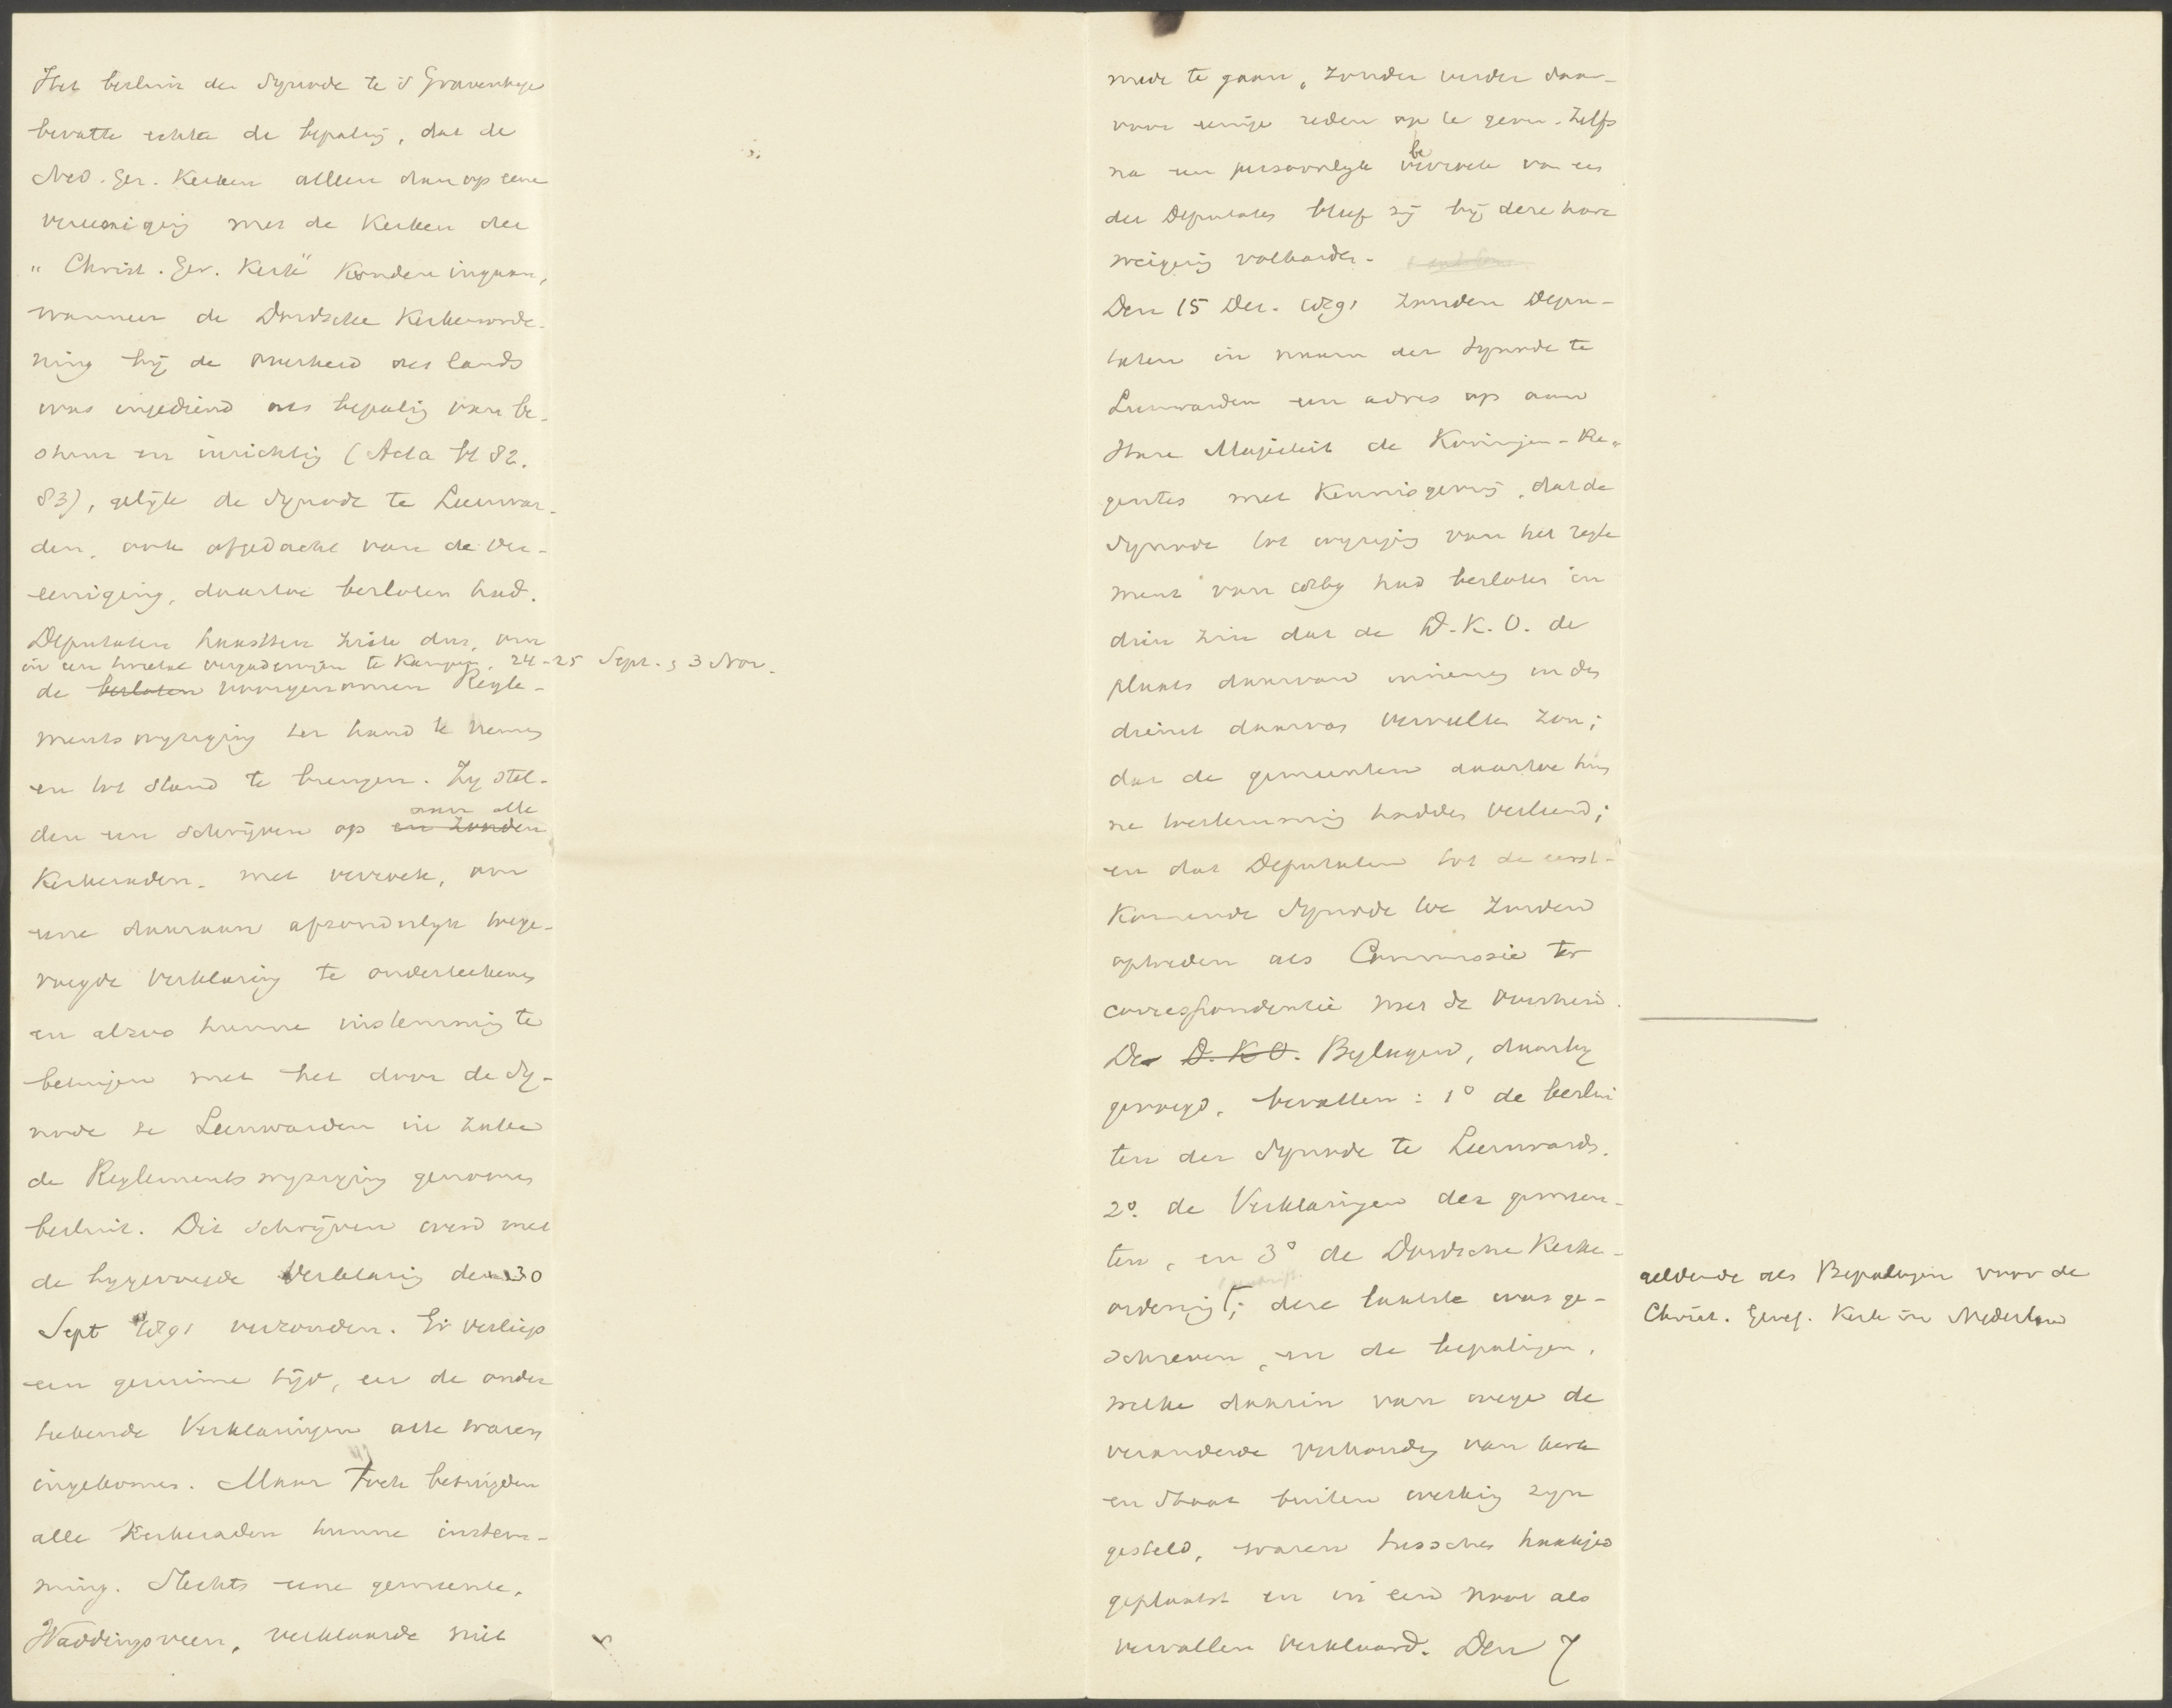 Het besluit der Synode te 's Gravenhage
bevatte echter de bepaling, dat de
Ned. Ger. Kerken alleen dan op eene
vereeniging met de Kerken der
"Christ. Ger. Kerk" konden ingaan,
wanneer de Dordsche Kerkenorde-
ning bij de Overheid des lands
was ingediend als bepaling van be-
stuur en inrichting (Acta bl 82.
83), gelijk de Synode te Leeuwar-
den, ook afgedacht van de ver-
eeniging, daartoe besloten had.
Deputaten haastten zich dus, om
in een tweetal vergaderingen te Kampen, 24-25 Sept. & 3 Nov.
de besloten voorgenomen Regle-
mentswijziging ter hand te nemen
en tot stand te brengen. Zij stel-
aan alle
den een schrijven op en zonden
Kerkeraden, met verzoek, om
eene daaraan afzonderlijk toege-
voegde Verklaring te onderteekenen
en alzoo hunne instemming te
betuigen met het door de Sy-
node te Leeuwarden in zake
de Reglementswijziging genomen
besluit. Dit schrijven werd met
de bijgevoegde Verklaring den 30
Sept 1891 verzonden. Er verliep
een geruime tijd, eer de onder
teekende Verklaringen alle waren
ingekomen. Maar toch betuigden
alle Kerkeraden hunne instem-
ming. Slechts eene gemeente,
Waddingsveen, verklaarde niet
mede te gaan, zonder verder daar-
voor eenige reden op te geven. Zelfs
be
na een persoonlijk verzoek van een
der Deputaten bleef zij bij deze hare
weigering volharden.
Den 15 Dec. 1891 zonden Depu-
taten in naam der Synode te
Leeuwarden een adres op aan
Hare Majesteit de Koningin-Re-
gentes met kennisgeving, dat de
Synode tot wijziging van het regle
ment van 1869 had besloten in
dien zin dat de D.K.O. de
plaats daarvan innemen en den
dienst daarvan vervullen zou;
dat de gemeenten daartoe hun
ne toestemming hadden verleend;
en dat Deputaten tot de eerst-
komende Synode toe zouden
optreden als Commissie ter
correspondentie met de Overheid.
De D.K.O. Bijlagen, daarbij
gevoegd, bevatten: 1° de beslui
ten der Synode te Leeuwarden.
2° de Verklaringen der gemeen-
ten, en 3° de Dordsche Kerke-
ordening; deze laatste was ge-
geldende als Bepalingen voor de
Christ. Geref. Kerk in Nederland
schreven, en de bepalingen,
welke daarin van wege de
veranderde verhouding van kerk
en Staat buiten werking zijn
gesteld, waren tusschen haakjes
geplaatst en in een noot als
vervallen verklaard. Den 7